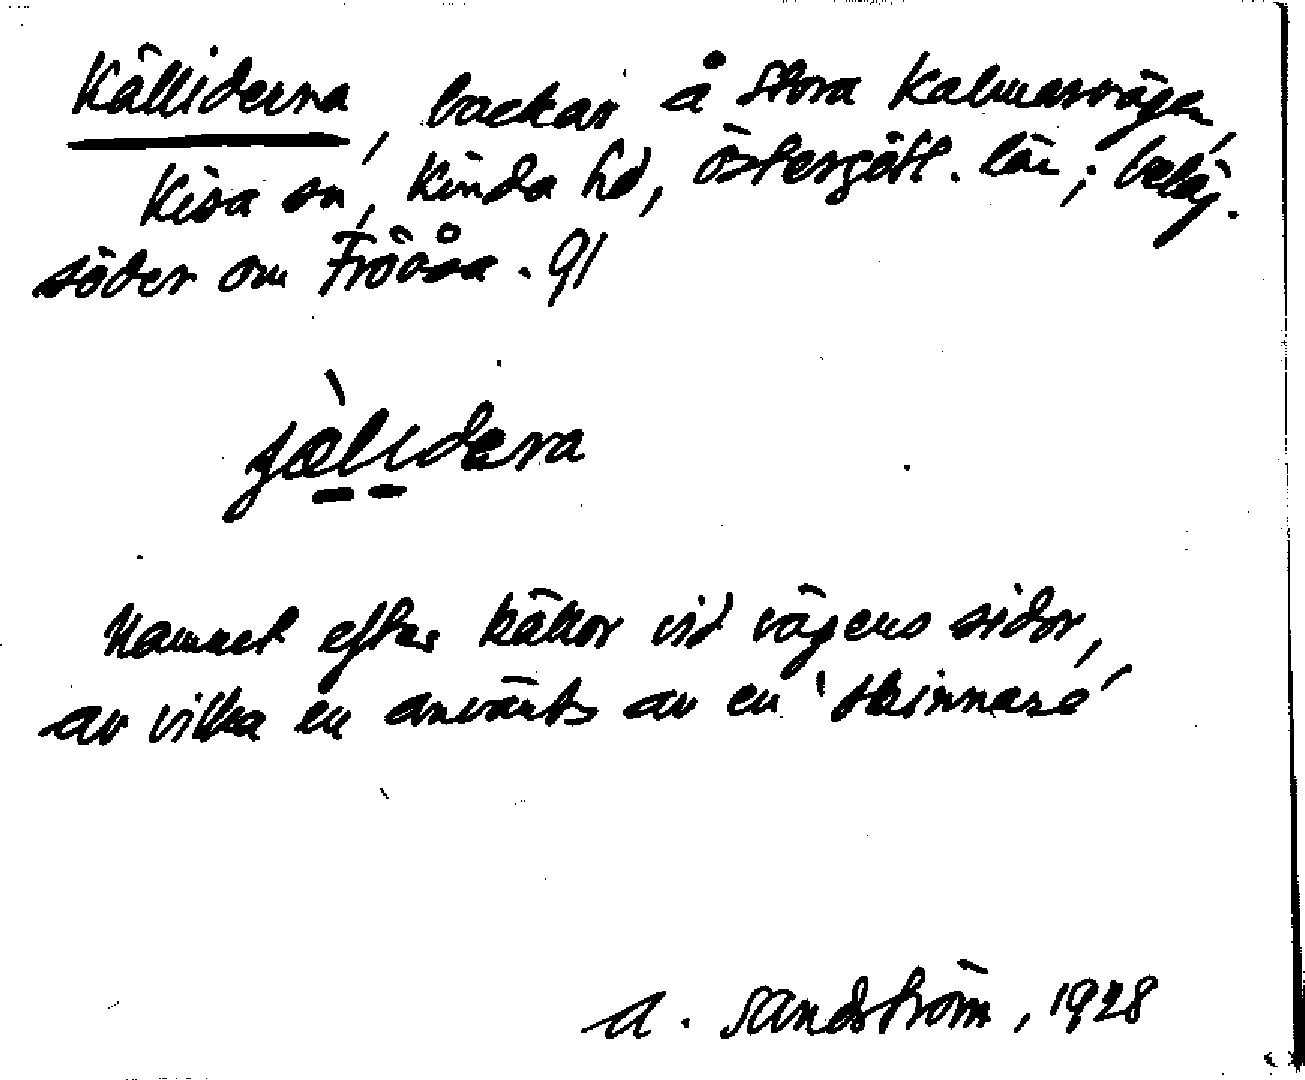 Källiderna, backar å stora Kalmarvägen,
Kisa sn, Kinda hd, Östergötl. län; beläg.
söder om Fröåsa. 91
jælıdera
Namnet efter källor vid vägens sidor,
av vilka en använts av en 'skinnare'
A. Sandström, 1928